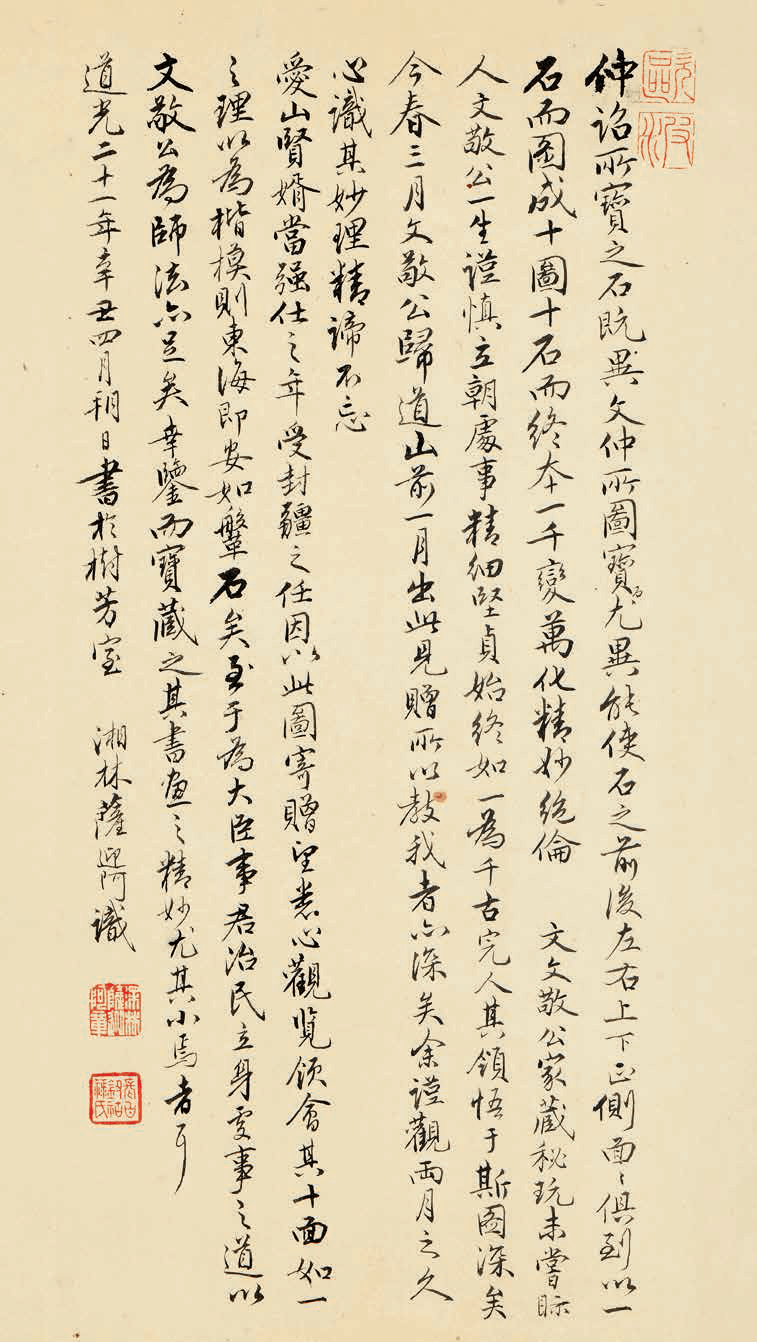 仲詔所寶之石既異文仲所圖寶石尤異能使石之前後左右上下正側面〻俱到以一
石而圖成十圖十石而終本一千變萬化精妙絕倫　文文敬公家藏秘玩未嘗眎
人文敬公一生謹慎立朝處事精細堅貞始終如一為千古完人其領悟于斯圖深矣
今春三月文敬公歸道山前一月出此見贈所以教我者亦深矣余謹觀兩月之久
心識其妙理精諦不忘
愛山賢婿當強仕之年受封疆之任因以此圖寄贈望悉心觀覽領會其十面如一
之理以為楷模則東海即安如磐石矣至于為大臣事君治民立身處事之道以
文敬公為師法亦足矣幸鑒而寶藏之其書畫之精妙尤其小焉者耳
道光二十一年辛丑四月朔日書於樹芳室　湘林薩迎阿識